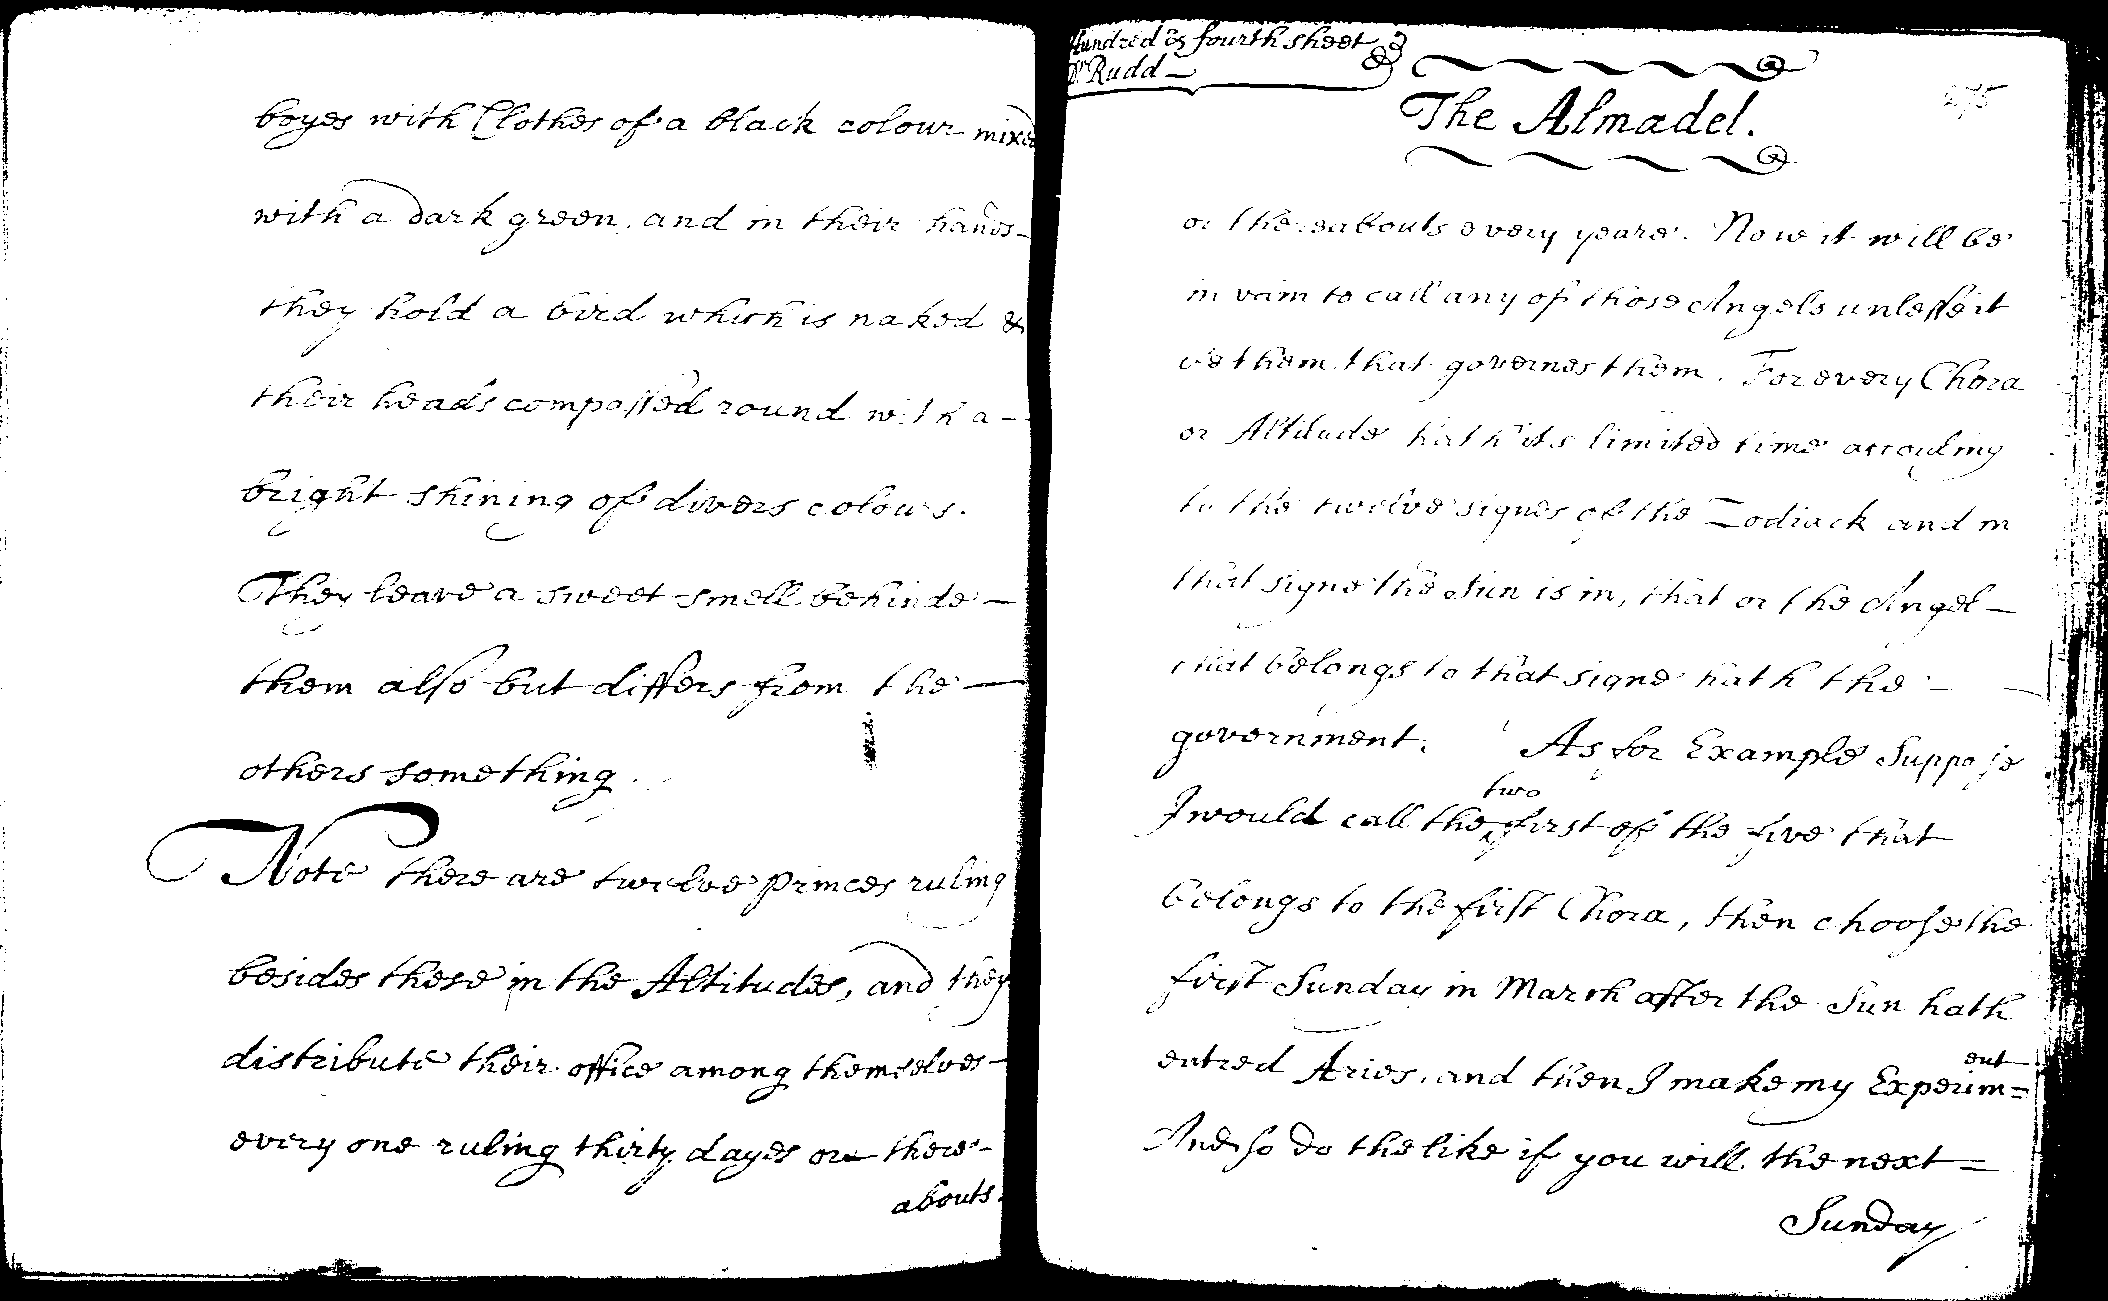 boyes with Clothes of a black colour mixed
with a dark green, and in their hands-
they hold a bird which is naked &
their heads compassed round with a-
bright shining of divers colours.
They leave a sweet smell behinde-
them also but differs from the-
others something.
Note there are twelve princes ruling
besides these in the Altitudes, and they
distribute their office among themselves-
every one ruling thirty dayes or there-
abouts.
Hundred & fourth sheet
Dr Rudd-
The Almadel.
275
or thereabouts every yeare. Now it will be
in vain to call any of those Angels unlesse it
be them that governes them. For every Chora
or Altitude hath its limited time according
to the twelve signes of the Zodiack and in
that signe the Sun is in, that or the Angel-
that belongs to that signe hath the-
government. As for Example Suppose
I would call the two first of the five that
belongs to the first Chora, then choose the
first Sunday in March after the Sun hath
entred Aries, and then I make my Experim=ent
And so do the like if you will the next=
Sunday